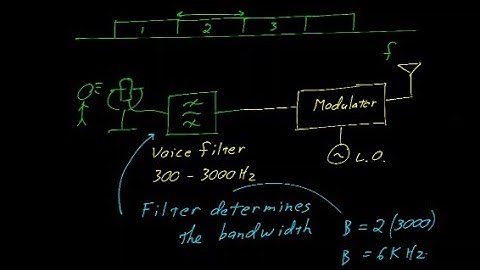 1 2 3
f
Modulator
~ L.O.
Voice filter
300 - 3000 Hz
Filter determines
the bandwidth
B = 2 (3000)
B = 6 KHz